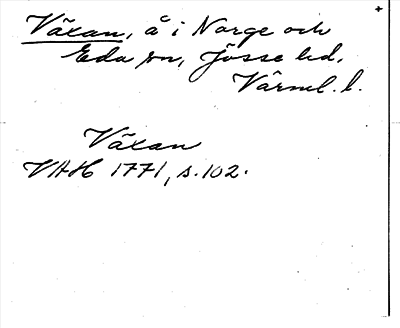 Växan, å i Norge och
Eda sn, Jösse hd,
Värml. l.
Växan
VAH 1771, s. 102.